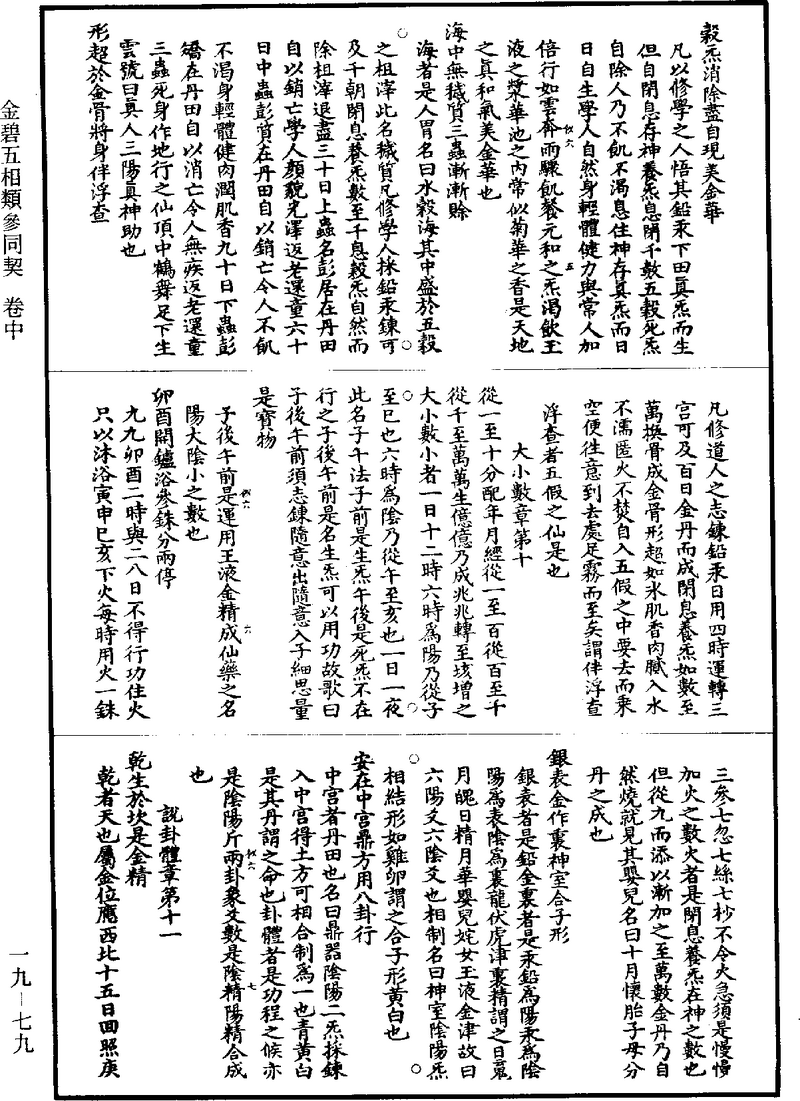 穀炁消除盡自現美金華
凡以修學之人悟其鉛汞下田真炁而生
但自閉息存神養炁息閉千數五穀死炁
自除人乃不飢不渴息住神存真炁而日
日自生學人自然身輕體健力與常人加
倍行如雲奔雨驟飢餐元和之炁渴飲玉
液之漿華池之內常似菊華之香是天地
之真和氣美金華也
海中無穢質三蟲漸漸除
海者是人胃名曰水穀海其中盛於五穀
之柤滓此名穢質凡修學人採鉛汞鍊可
及千朝閉息養炁數至千息穀炁自然而
除柤滓退盡三十日上蟲名彭居在丹田
自以銷亡學人顏貌光澤返老還童六十
日中蟲彭質在丹田自以銷亡令人不飢
不渴身輕體健肉潤肌香九十日下蟲彭
矯在丹田自以消亡令人無疾返老還童
三蟲死身作地行之仙頂中鶴舞足下生
雲號曰真人三陽真神助也
形超於金骨將身伴浮查
凡修道人之志鍊鉛汞日用四時運轉三
宮可及百日金丹而成閉息養炁如數至
萬換骨成金骨形超如氷肌香肉膩入水
不濡匿火不焚自入五假之中要去而乘
空便往意到去處足霧而至矣謂伴浮查
浮查者五假之仙是也
大小數章第十
從一至十分配年月經從一至百從百至千
從千至萬萬生億億乃成兆兆轉至垓增之
大小數小者一日十二時六時為陽乃從子
至巳也六時為陰乃從午至亥也一日一夜
此名子午法子前是生炁午後是死炁不在
行之子後午前是名生炁可以用功故歌曰
子後午前須志鍊隨意出隨意入子細思量
是寶物
子後午前是運用玉液金精成仙藥之名
陽大陰小之數也
卯酉開鑪浴參銖分兩停
九九卯酉二時與二八日不得行功住火
只以沐浴寅申巳亥下火每時用火一銖
三參七忽七絲七杪不令火急須是慢慢
加火之數火者是閉息養炁在神之數也
但從九而添以漸加之至萬數金丹乃自
然燒就見其嬰兒名曰十月懷胎子母分
丹之成也
銀表金作裏神室合子形
銀表者是鉛金裏者是汞鉛為陽汞為陰
陽為表陰為裏龍伏虎津裏精謂之日蒐
月魄日精月華嬰兒姹女玉液金津故曰
六陽爻六陰爻也相制名曰神室陰陽炁
相結形如雞卵謂之合子形黃白也
安在中宮鼎方用八卦行
中宮者丹田也名曰鼎器陰陽二炁採鍊
入中宮得土方可相合制為一也青黃白
是其丹謂之命也卦體者是功程之候亦
是陰陽斤兩卦象爻數是陰精陽精合成
也
說卦體章第十一
乾生於坎是金精
乾者天也屬金位應西北十五日回照庚
金碧五相類參同契　卷中
一九—七九